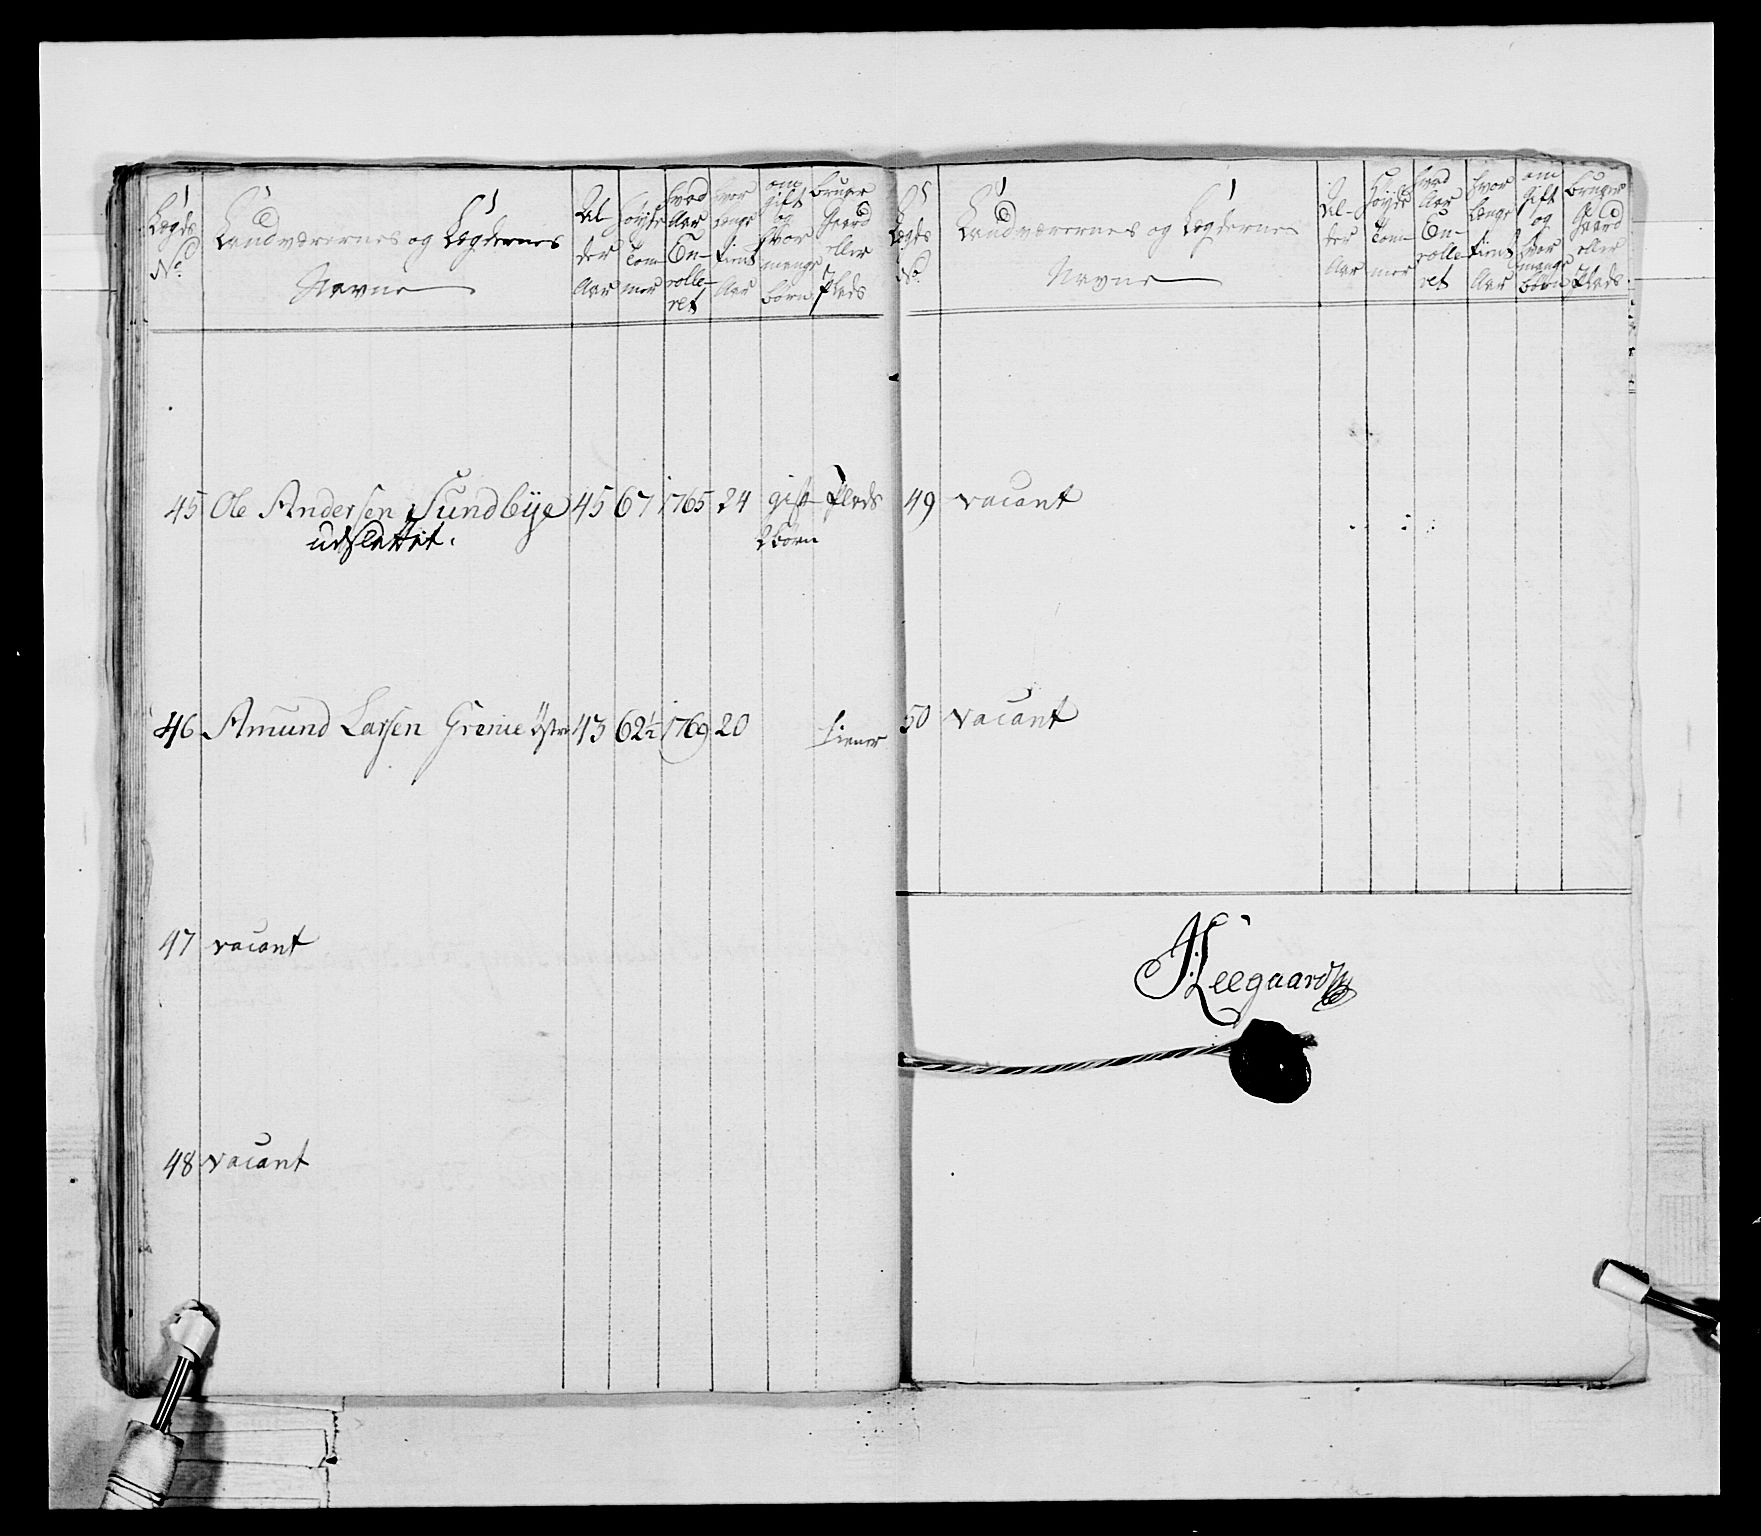 Lægds No.
Landværernes og Lægdernes Navne
Al-
der
Aar
Høyde
Tom-
mer
hvad
Aar
En-
rolle-
ret
hvor
længe
tient
Aar
om
Gift
og
hvor
mange
børn
bruger
Gaard
eller
Plads
45 Ole Andersen Sundbÿe 45 67 1765 24 gift Plads
udslettet. 2 børn
46 Amund Larsen Grenie Östre 43 62½ 1769 20 tiener
47 vacant
48 vacant
Lægds No.
Landværernes og Lægdernes
Navne
Al-
der
Aar
Høyde
Tom-
mer
hvad
Aar
En-
rolle-
ret
hvor
længe
tient
Aar
om
Gift
og
hvor
mange
børn
bruger
Gaard
eller
Plads
49 vacant
50 vacant
Leegaard